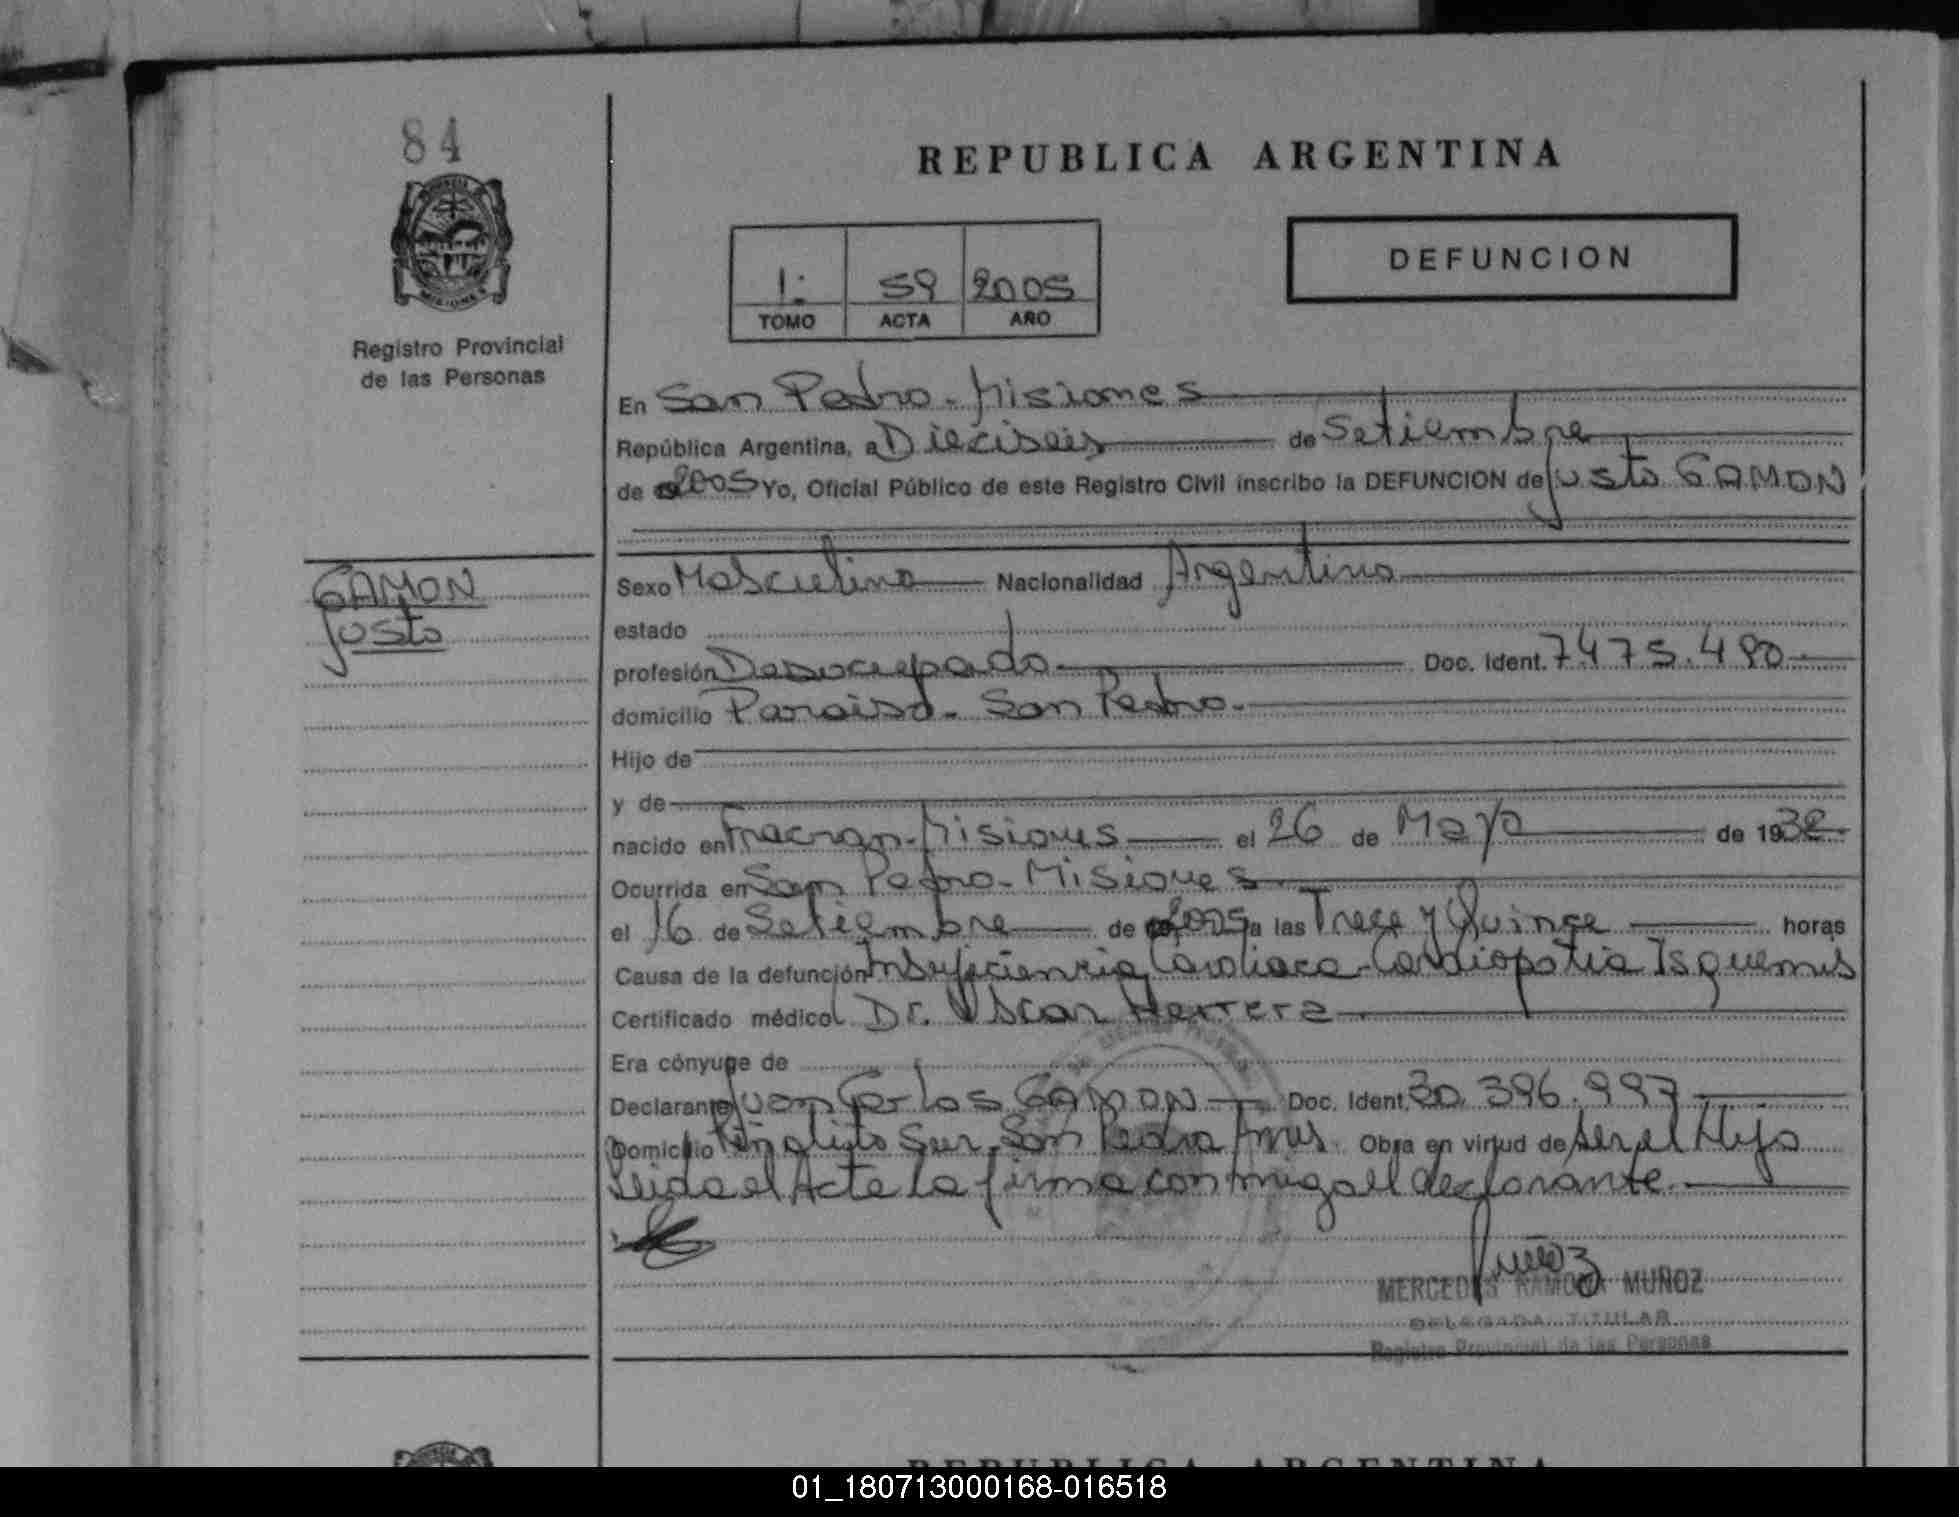 84
REPUBLICA ARGENTINA
I: 59 2005
TOMO ACTA AÑO
DEFUNCION
Registro Provincial
de las Personas
En San Pedro - Misiones
República Argentina, a Dieciseis de Setiembre
de 2005 Yo, Oficial Público de este Registro Civil inscribo la DEFUNCION de Justo GAMON
GAMON
Justo
Sexo Masculino Nacionalidad Argentino
estado
profesión Desocupado Doc. Ident. 7475.480
domicilio Paraiso - San Pedro.
Hijo de
y de
nacido en Fracran - Misiones el 26 de Mayo de 1932
Ocurrida en San Pedro - Misiones
el 16 de Setiembre de 2005 a las Trece y Quince horas
Causa de la defunción Insuficiencia Cardiaca - Cardiopatia Isquemis
Certificado médico Dr. Oscar Herrera
Era cónyuge de
Declarante Juan Carlos GAMON Doc. Ident. 30.396.997
Domicilio Piñalito Sur San Pedro Mnes. Obra en virtud de ser el Hijo
Leida el Acta la firma conmigo el declarante.
MERCEDES RAMONA MUÑOZ
DELEGADA TITULAR
Registro Provincial de las Personas
REPUBLICA ARGENTINA
01_180713000168-016518